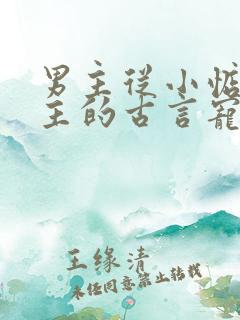 男主从小惦
主的古言宠
王缘清
未经同意禁止转载